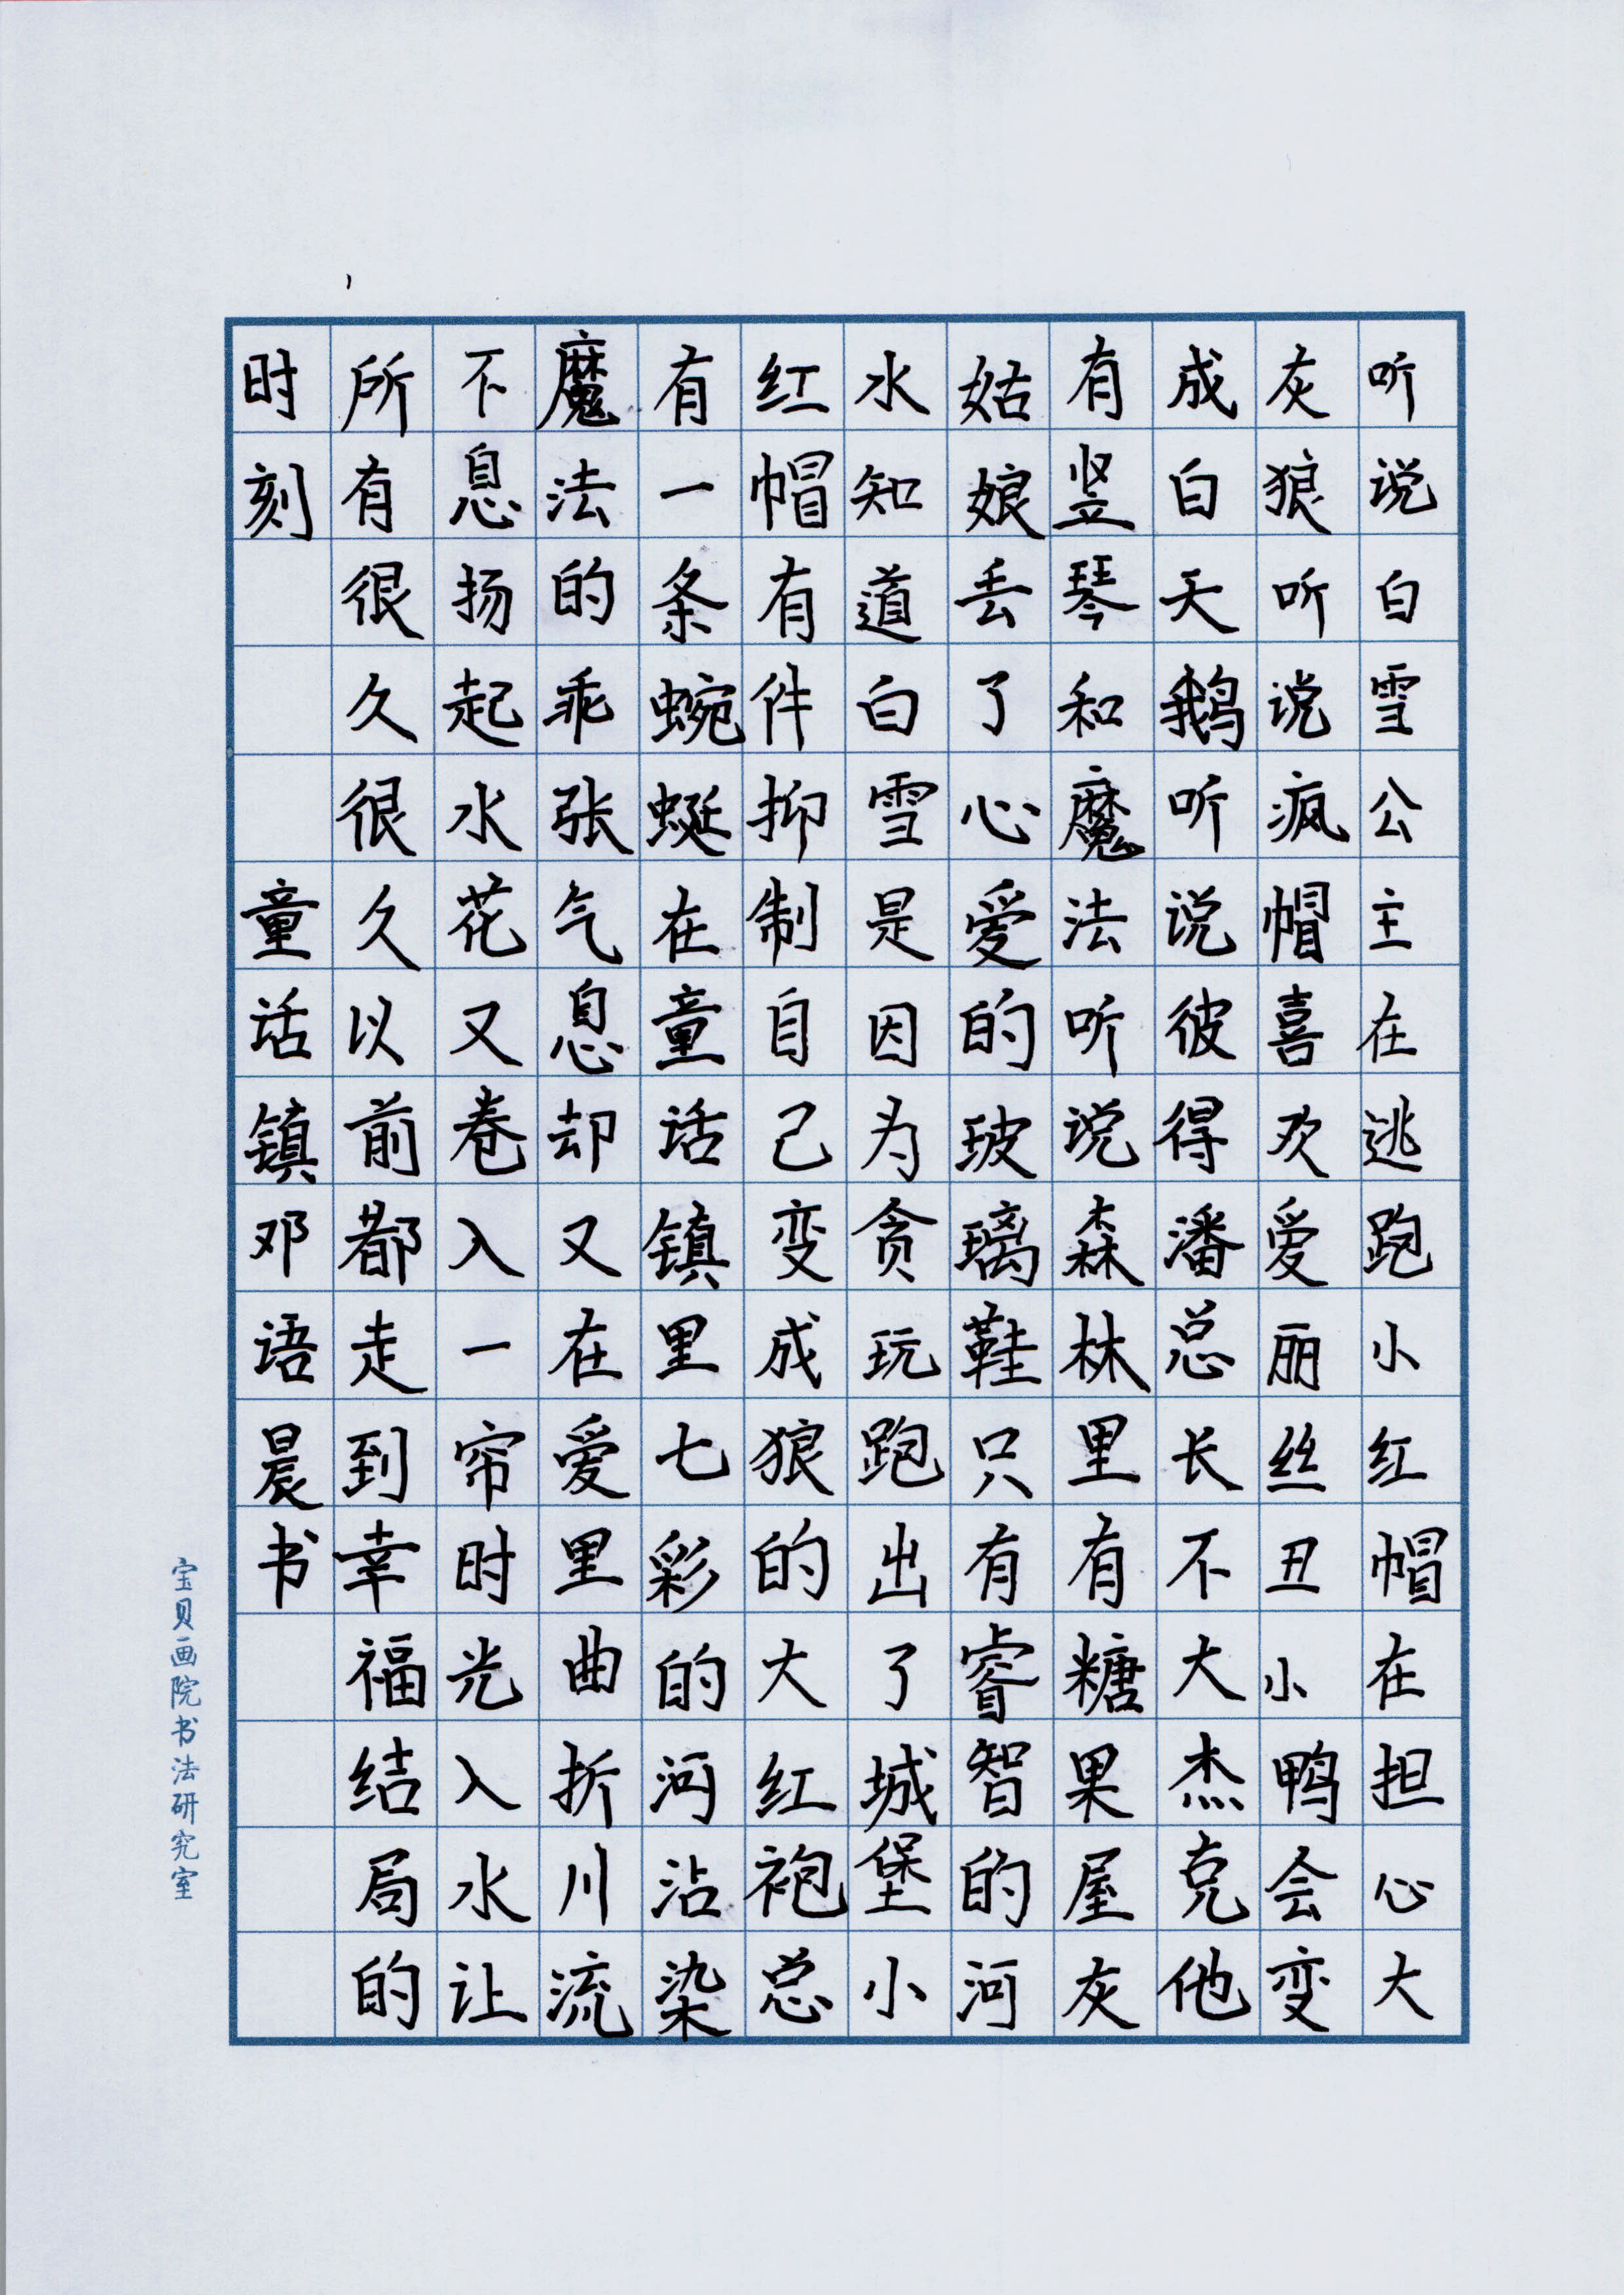 听说白雪公主在逃跑小红帽在担心大
灰狼听说疯帽喜欢爱丽丝丑小鸭会变
成白天鹅听说彼得潘总长不大杰克他
有竖琴和魔法听说森林里有糖果屋灰
姑娘丢了心爱的玻璃鞋只有睿智的河
水知道白雪是因为贪玩跑出了城堡小
红帽有件抑制自己变成狼的大红袍总
有一条蜿蜒在童话镇里七彩的河沾染
魔法的乖张气息却又在爱里曲折川流
不息扬起水花又卷入一帘时光入水让
所有很久很久以前都走到幸福结局的
时刻
童话镇邓语晨书
宝贝画院书法研究室